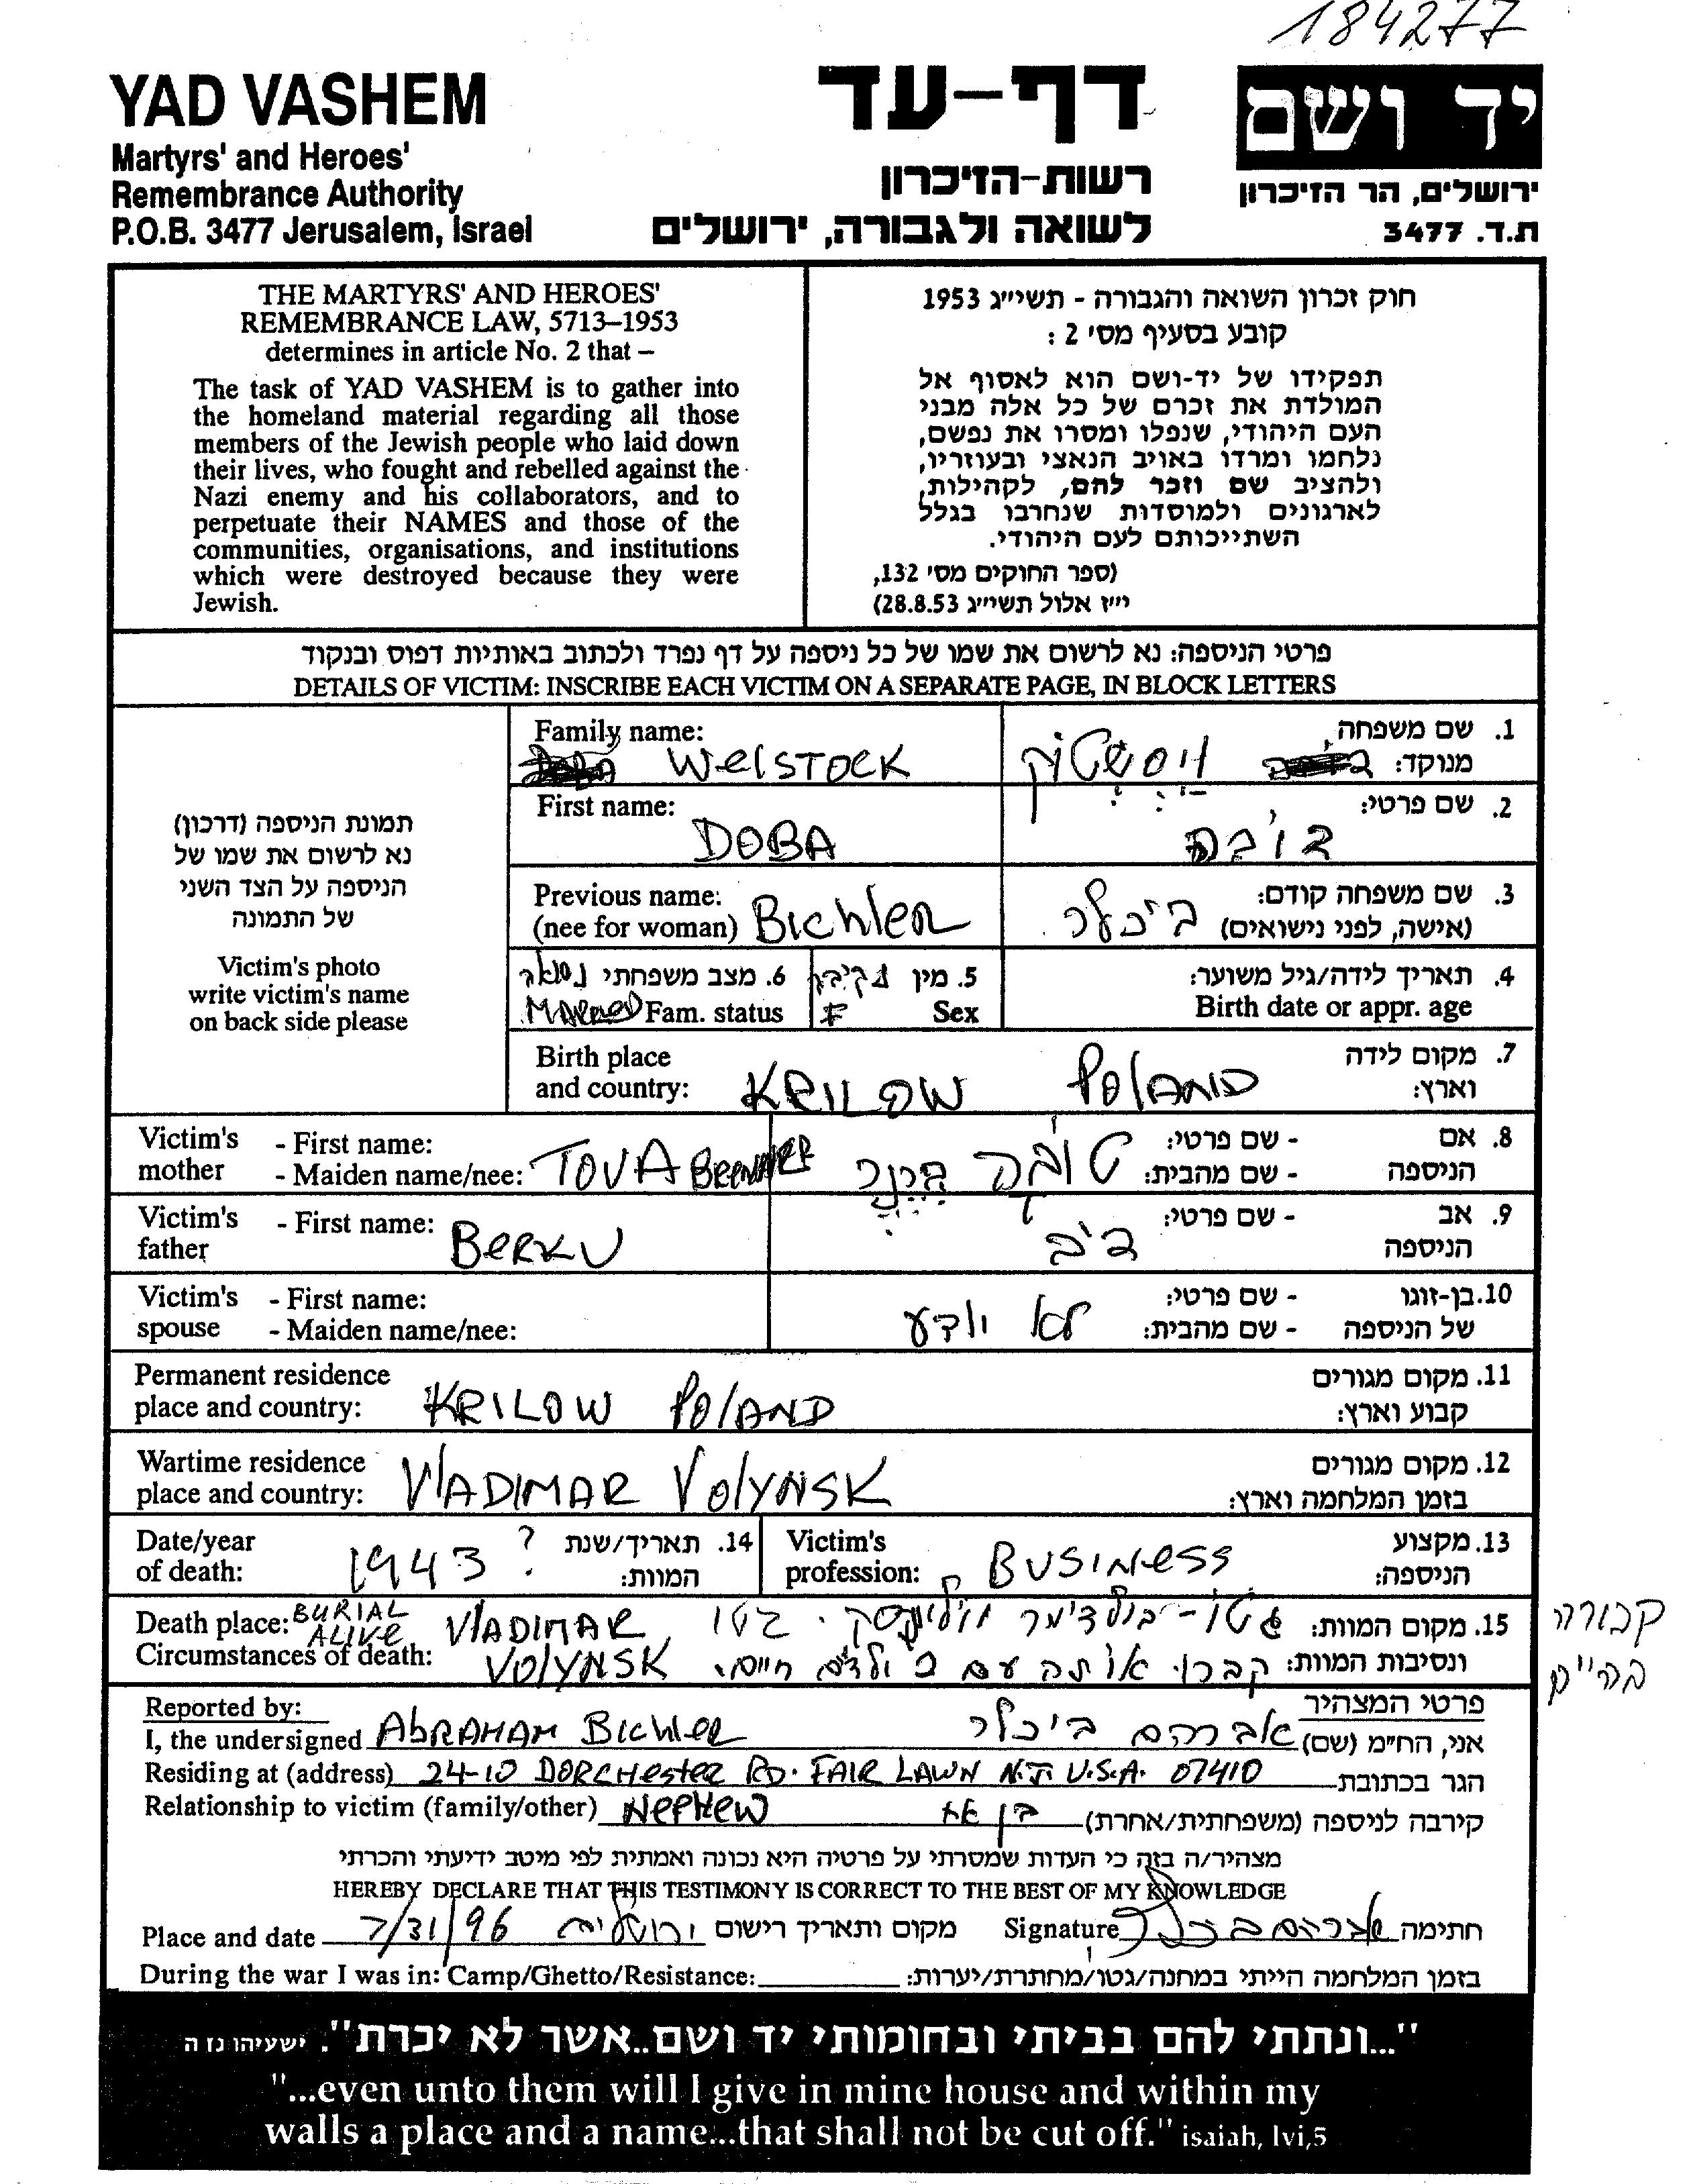 184277
YAD VASHEM
Martyrs' and Heroes'
Remembrance Authority
P.O.B. 3477 Jerusalem, Israel
דף-עד
רשות-הזיכרון
לשואה ולגבורה, ירושלים
יד ושם
ירושלים, הר הזיכרון
ת.ד. 3477
THE MARTYRS' AND HEROES'
REMEMBRANCE LAW, 5713–1953
determines in article No. 2 that –
The task of YAD VASHEM is to gather into
the homeland material regarding all those
members of the Jewish people who laid down
their lives, who fought and rebelled against the
Nazi enemy and his collaborators, and to
perpetuate their NAMES and those of the
communities, organisations, and institutions
which were destroyed because they were
Jewish.
חוק זכרון השואה והגבורה - תשי״ג 1953
קובע בסעיף מס׳ 2 :
תפקידו של יד-ושם הוא לאסוף אל
המולדת את זכרם של כל אלה מבני
העם היהודי, שנפלו ומסרו את נפשם,
נלחמו ומרדו באויב הנאצי ובעוזריו,
ולהציב שם וזכר להם, לקהילות,
לארגונים ולמוסדות שנחרבו בגלל
השתייכותם לעם היהודי.
(ספר החוקים מס׳ 132,
י״ז אלול תשי״ג 28.8.53)
פרטי הניספה: נא לרשום את שמו של כל ניספה על דף נפרד ולכתוב באותיות דפוס ובנקוד
DETAILS OF VICTIM: INSCRIBE EACH VICTIM ON A SEPARATE PAGE, IN BLOCK LETTERS
תמונת הניספה (דרכון)
נא לרשום את שמו של
הניספה על הצד השני
של התמונה
Victim's photo
write victim's name
on back side please
Family name: WelSTOCK
1. שם משפחה, מנוקד:
First name: DOBA
2. שם פרטי: דובה
Previous name:
(nee for woman) BIChleR
3. שם משפחה קודם:
(אישה, לפני נישואים) ביכלר
4. תאריך לידה/גיל משוער:
Birth date or appr. age
5. מין נקיבה
F Sex
6. מצב משפחתי נשואה
MARRIED Fam. status
Birth place
and country: KRILOW POlAND
7. מקום לידה
וארץ:
Victim's mother
- First name:
- Maiden name/nee: TOVA
8. אם הניספה
- שם פרטי:
- שם מהבית: טובה
Victim's father
- First name: BeRKU
9. אב הניספה
- שם פרטי:
Victim's spouse
- First name:
- Maiden name/nee:
10. בן-זוגו של הניספה
- שם פרטי:
- שם מהבית: לא יודע
Permanent residence
place and country: KRILOW POlAND
11. מקום מגורים
קבוע וארץ:
Wartime residence
place and country: VlADIMAR VOlYNSK
12. מקום מגורים
בזמן המלחמה וארץ:
Date/year
of death: 1943 ?
14. תאריך/שנת
המוות:
Victim's
profession: BUSINeSS
13. מקצוע
הניספה:
Death place: BURIAL ALIVe VlADIMAR
Circumstances of death: VOlYNSK
15. מקום המוות: גטו-
ונסיבות המוות: קברו אותה עם ילדים חיים.
קבורה
בחיים
Reported by:
I, the undersigned AbRAHAM BIChleR
פרטי המצהיר
אני, הח״מ (שם) אברהם ביכלר
Residing at (address) 24-10 DORCHesteR RD. FAIR LAWN N.J. U.S.A. 07410
הגר בכתובת
Relationship to victim (family/other) NePHeW
קירבה לניספה (משפחתית/אחרת) בן אח
מצהיר/ה בזה כי העדות שמסרתי על פרטיה היא נכונה ואמתית לפי מיטב ידיעתי והכרתי
HEREBY DECLARE THAT THIS TESTIMONY IS CORRECT TO THE BEST OF MY KNOWLEDGE
Place and date 7/31/96 ירושלים מקום ותאריך רישום
Signature אברהם ביכלר חתימה
During the war I was in: Camp/Ghetto/Resistance:
בזמן המלחמה הייתי במחנה/גטו/מחתרת/יערות:
"...ונתתי להם בביתי ובחומותי יד ושם..אשר לא יכרת". ישעיהו נו ה
"...even unto them will I give in mine house and within my
walls a place and a name...that shall not be cut off." isaiah, lvi,5